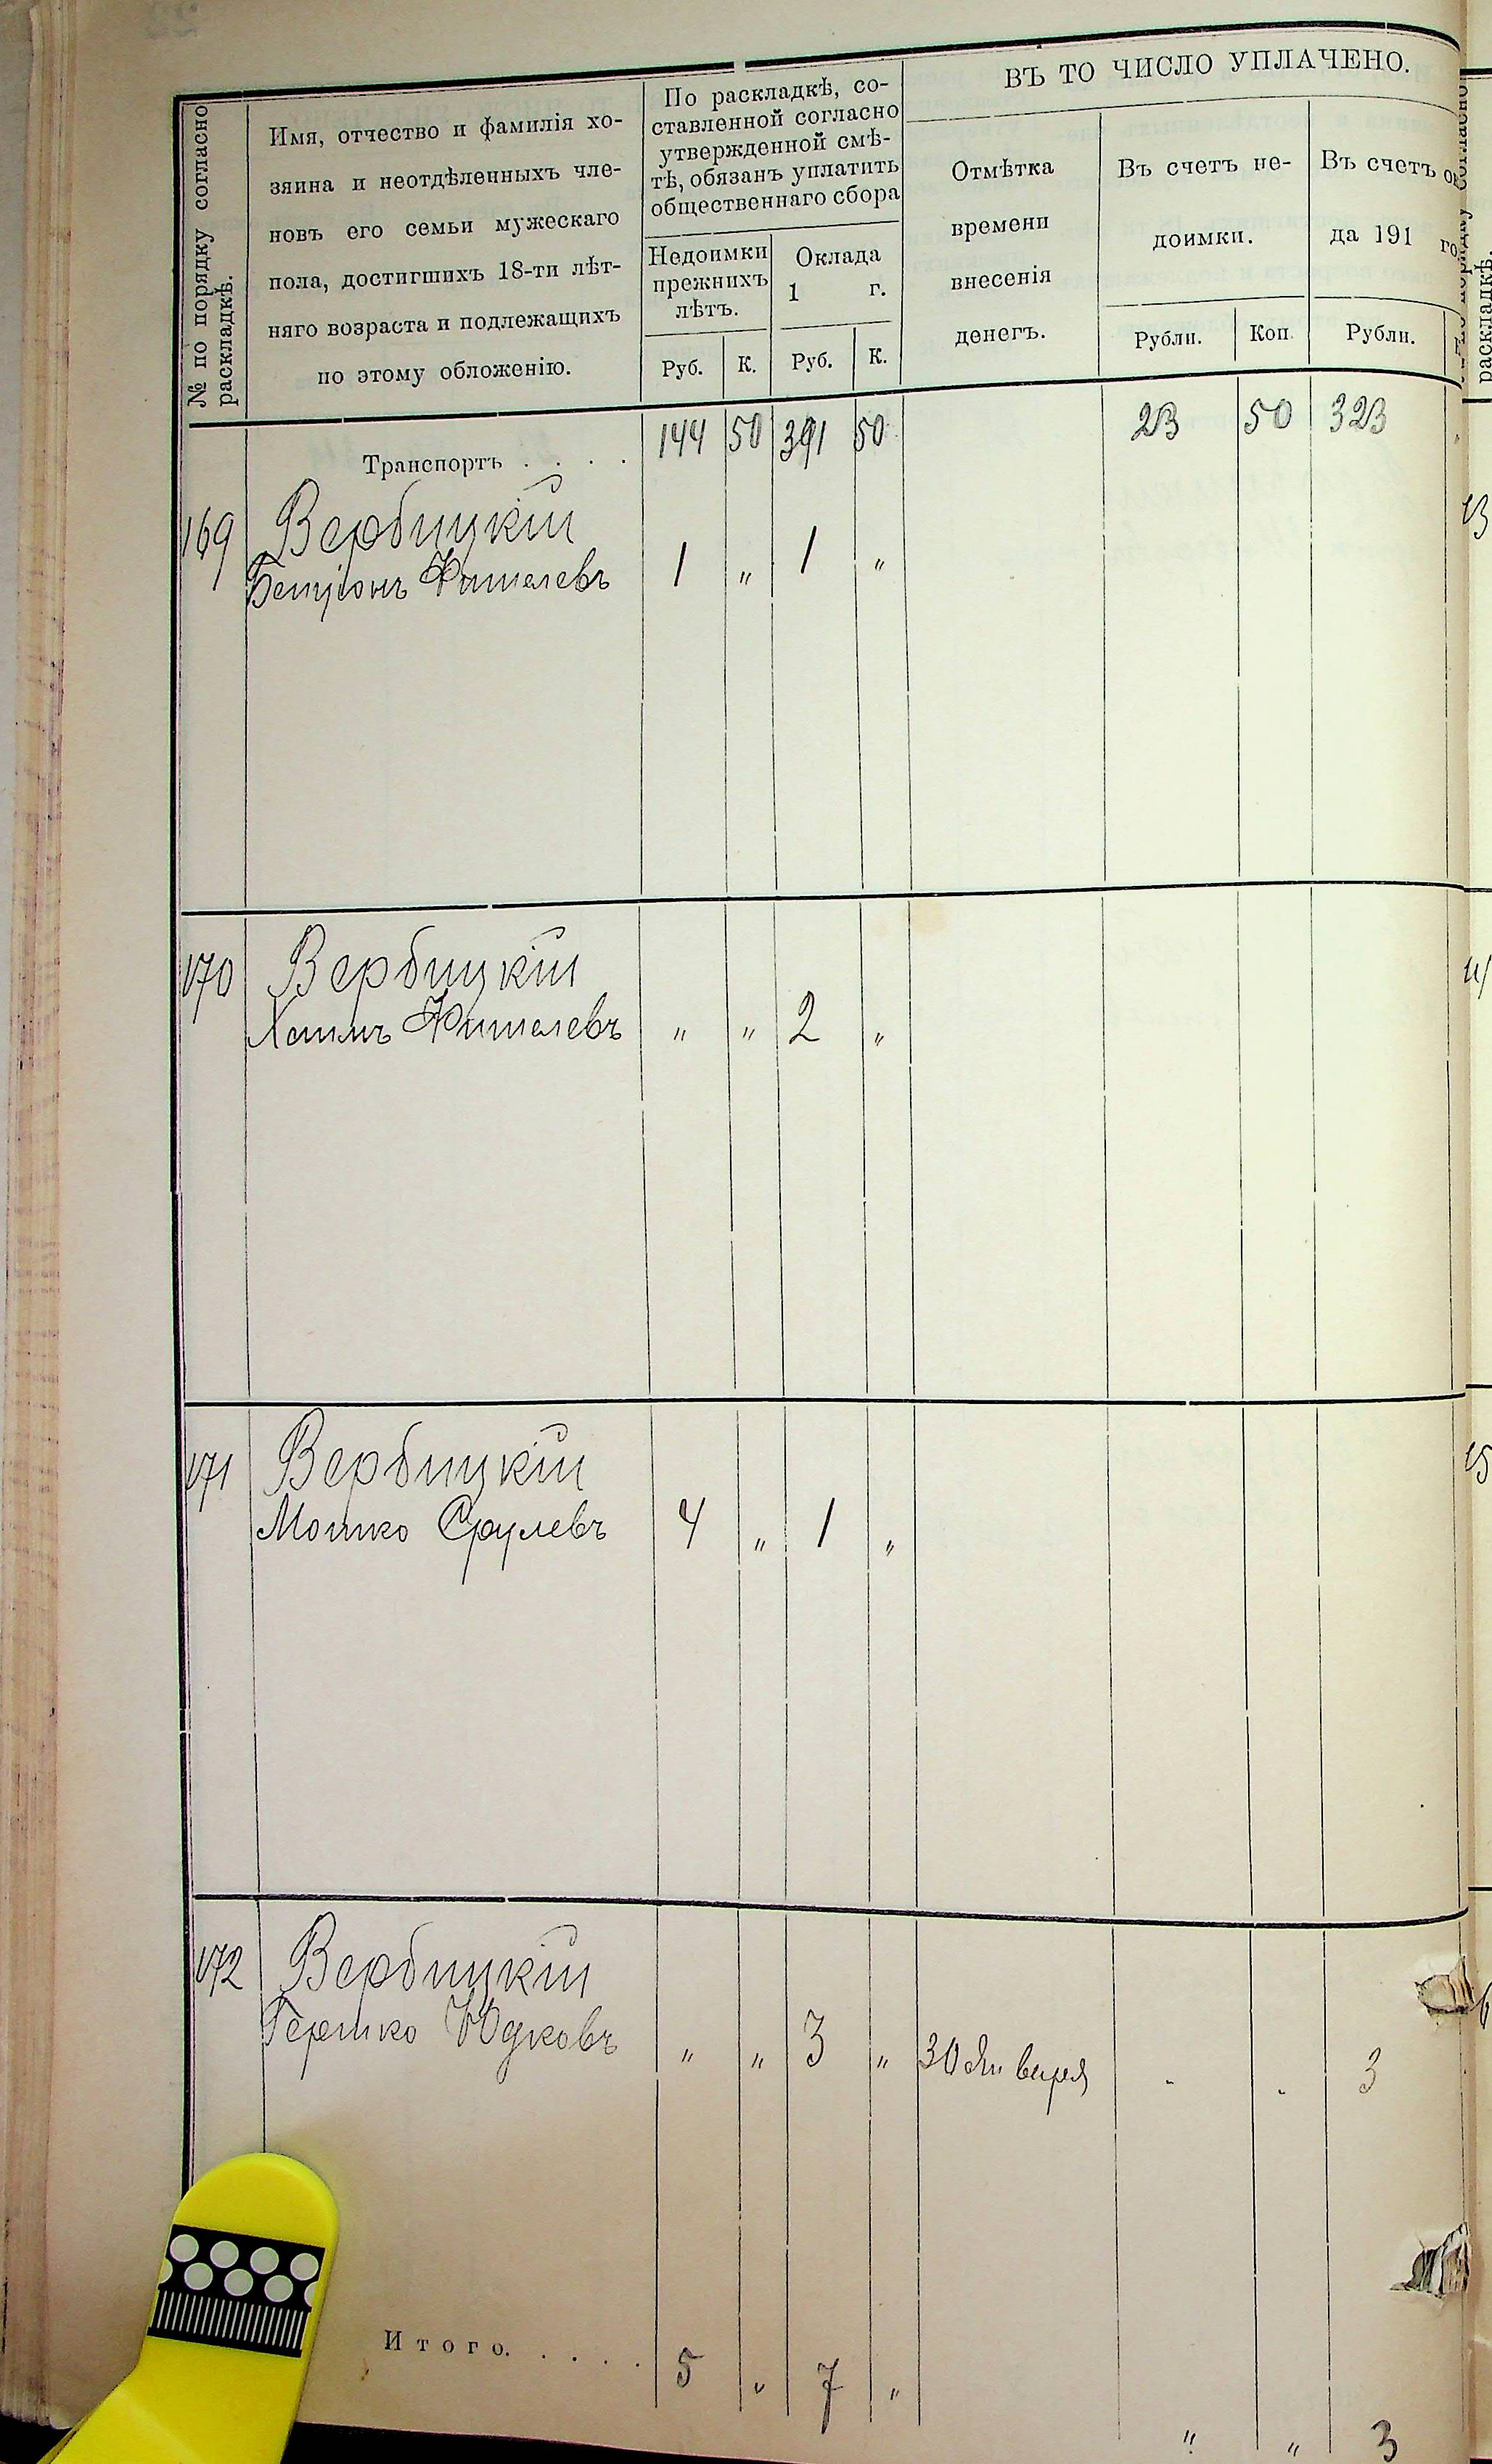 № по порядку согласно
раскладкѣ.
Имя, отчество и фамилія хо-
зяина и неотдѣленныхъ чле-
новъ его семьи мужескаго
пола, достигшихъ 18-ти лѣт-
няго возраста и подлежащихъ
по этому обложенію.
По раскладкѣ, со-
ставленной согласно
утвержденной смѣ-
тѣ, обязанъ уплатить
общественнаго сбора
Недоимки
прежнихъ
лѣтъ.
Оклада
1 г.
Руб. К. Руб. К.
ВЪ ТО ЧИСЛО УПЛАЧЕНО.
Отмѣтка
времени
внесенія
денегъ.
Въ счетъ не-
доимки.
Рубли. Коп.
Въ счетъ
да 191 го
Рубли.
Транспортъ . . . . 144 50 391 50 23 50 323
169 Вербицкій
Бенціонъ Фишелевъ 1 „ 1 „
170 Вербицкій
Хаимъ Фишелевъ „ „ 2 „
171 Вербицкій
Мошко Срулевъ 4 „ 1 „
172 Вербицкій
Гершко Юдковъ „ „ 3 „ 30 Января „ „ 3
Итого. . . . . 5 „ 7 „ „ „ 3